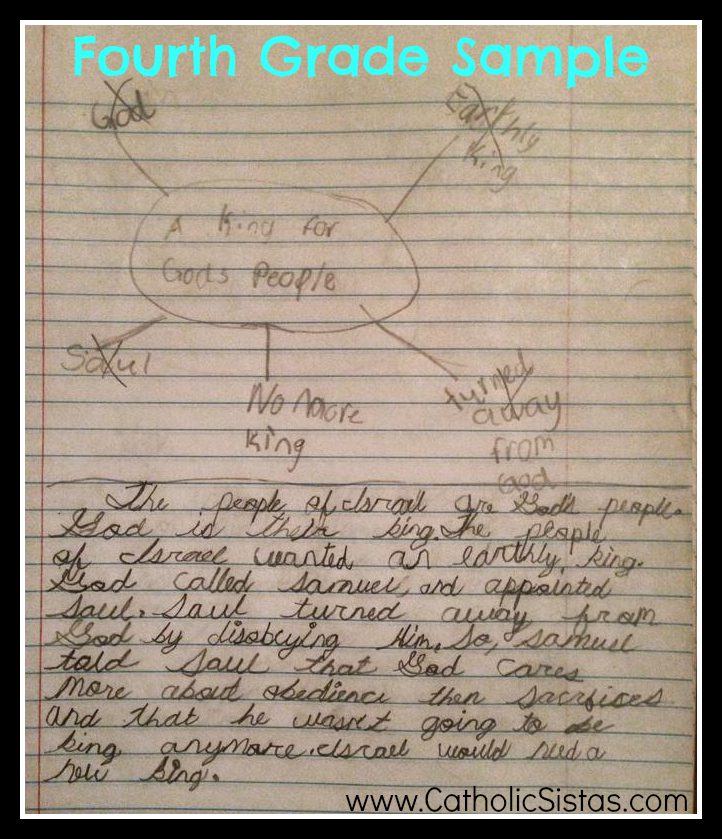 Fourth Grade Sample
God
Earthly
King
A King for
Gods People
Saul
No More
King
turned
away
from
God
The people of Israel are God's people.
God is their king. The people
of Israel wanted an earthly king.
God called Samuel, and appointed
Saul. Saul turned away from
God by disobeying Him. So, Samuel
told Saul that God cares
more about obedience then sacrifices
and that he wasn't going to be
king anymore. Israel would need a
new king.
www.CatholicSistas.com